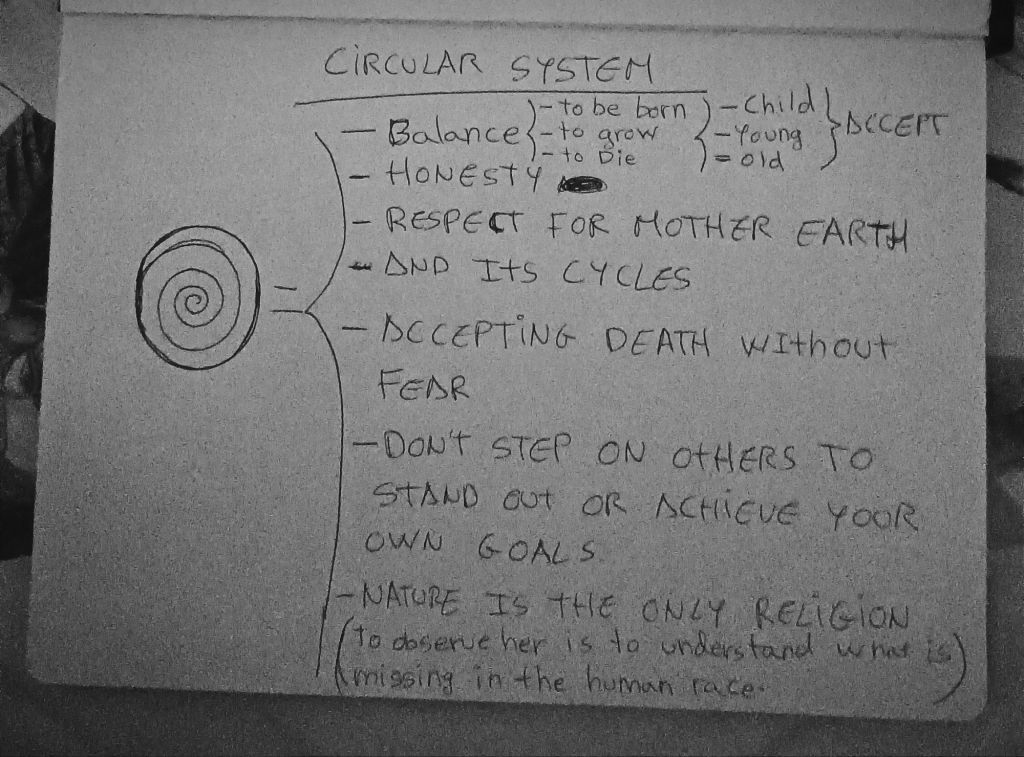 CiRCULAR SYSTEM
— Balance { - to be born - to grow - to Die } { - Child - Young = old } ACCEPT
- HONESTY
- RESPECT FOR MOTHER EARTH
- AND ITS CYCLES
=
- ACCEPTiNG DEATH WITHOUT
FEAR
- DON'T STEP ON OTHERS TO
STAND OUT OR ACHIEVE YOOR
OWN GOALS.
- NATURE IS THE ONLY RELIGION
(To observe her is to understand what is
missing in the human race.)